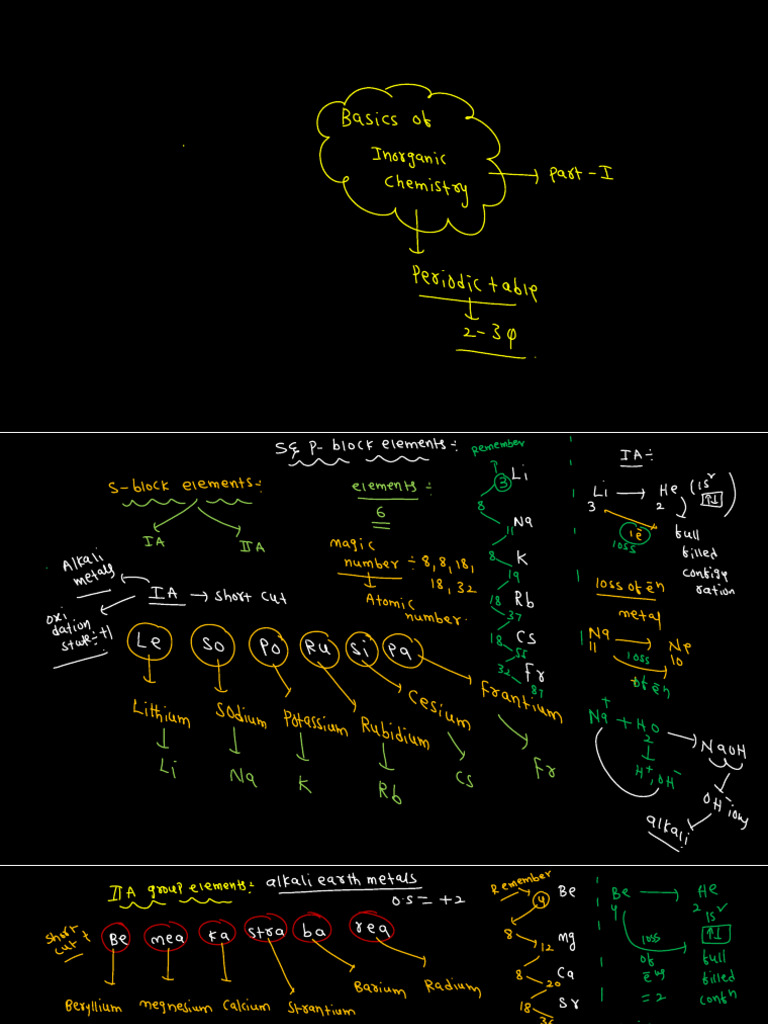 Basics of
Inorganic
Chemistry
→ Part-I
Periodic table
2-3φ
S & P- block elements:-
S-block elements:-
IA
IIA
elements:-
6
magic
number ÷ 8,8,18,
18,32
Atomic
number.
Alkali
metals
IA → short cut
oxi
dation
state ÷ +1
Le So Po Ru Si Pa
Lithium Sodium Potassium Rubidium Cesium Frantium
Li Na K Rb Cs Fr
Remember
3 Li
8
11 Na
8 K
19
18 Rb
37
18 Cs
55
32 Fr
87
IA:-
Li → He (1s²
3 2
1e⁻
loss
full
filled
configu
ration
loss of e⁻n
metal
Na → Ne
11 10
loss
of e⁻n
Na⁺ + H2O → NaOH
H⁺, OH⁻
OH⁻ ions
alkali
IIA group elements:- alkali earth metals
O.S = +2
short
cut
Be mea Ka stra ba rea
Beryllium megnesium Calcium Strantium Barium Radium
Remember
4 Be
8
12 mg
8 Ca
20
18 Sr
Be → He
4 2
1s²
loss
of
= 2
full
filled
confn